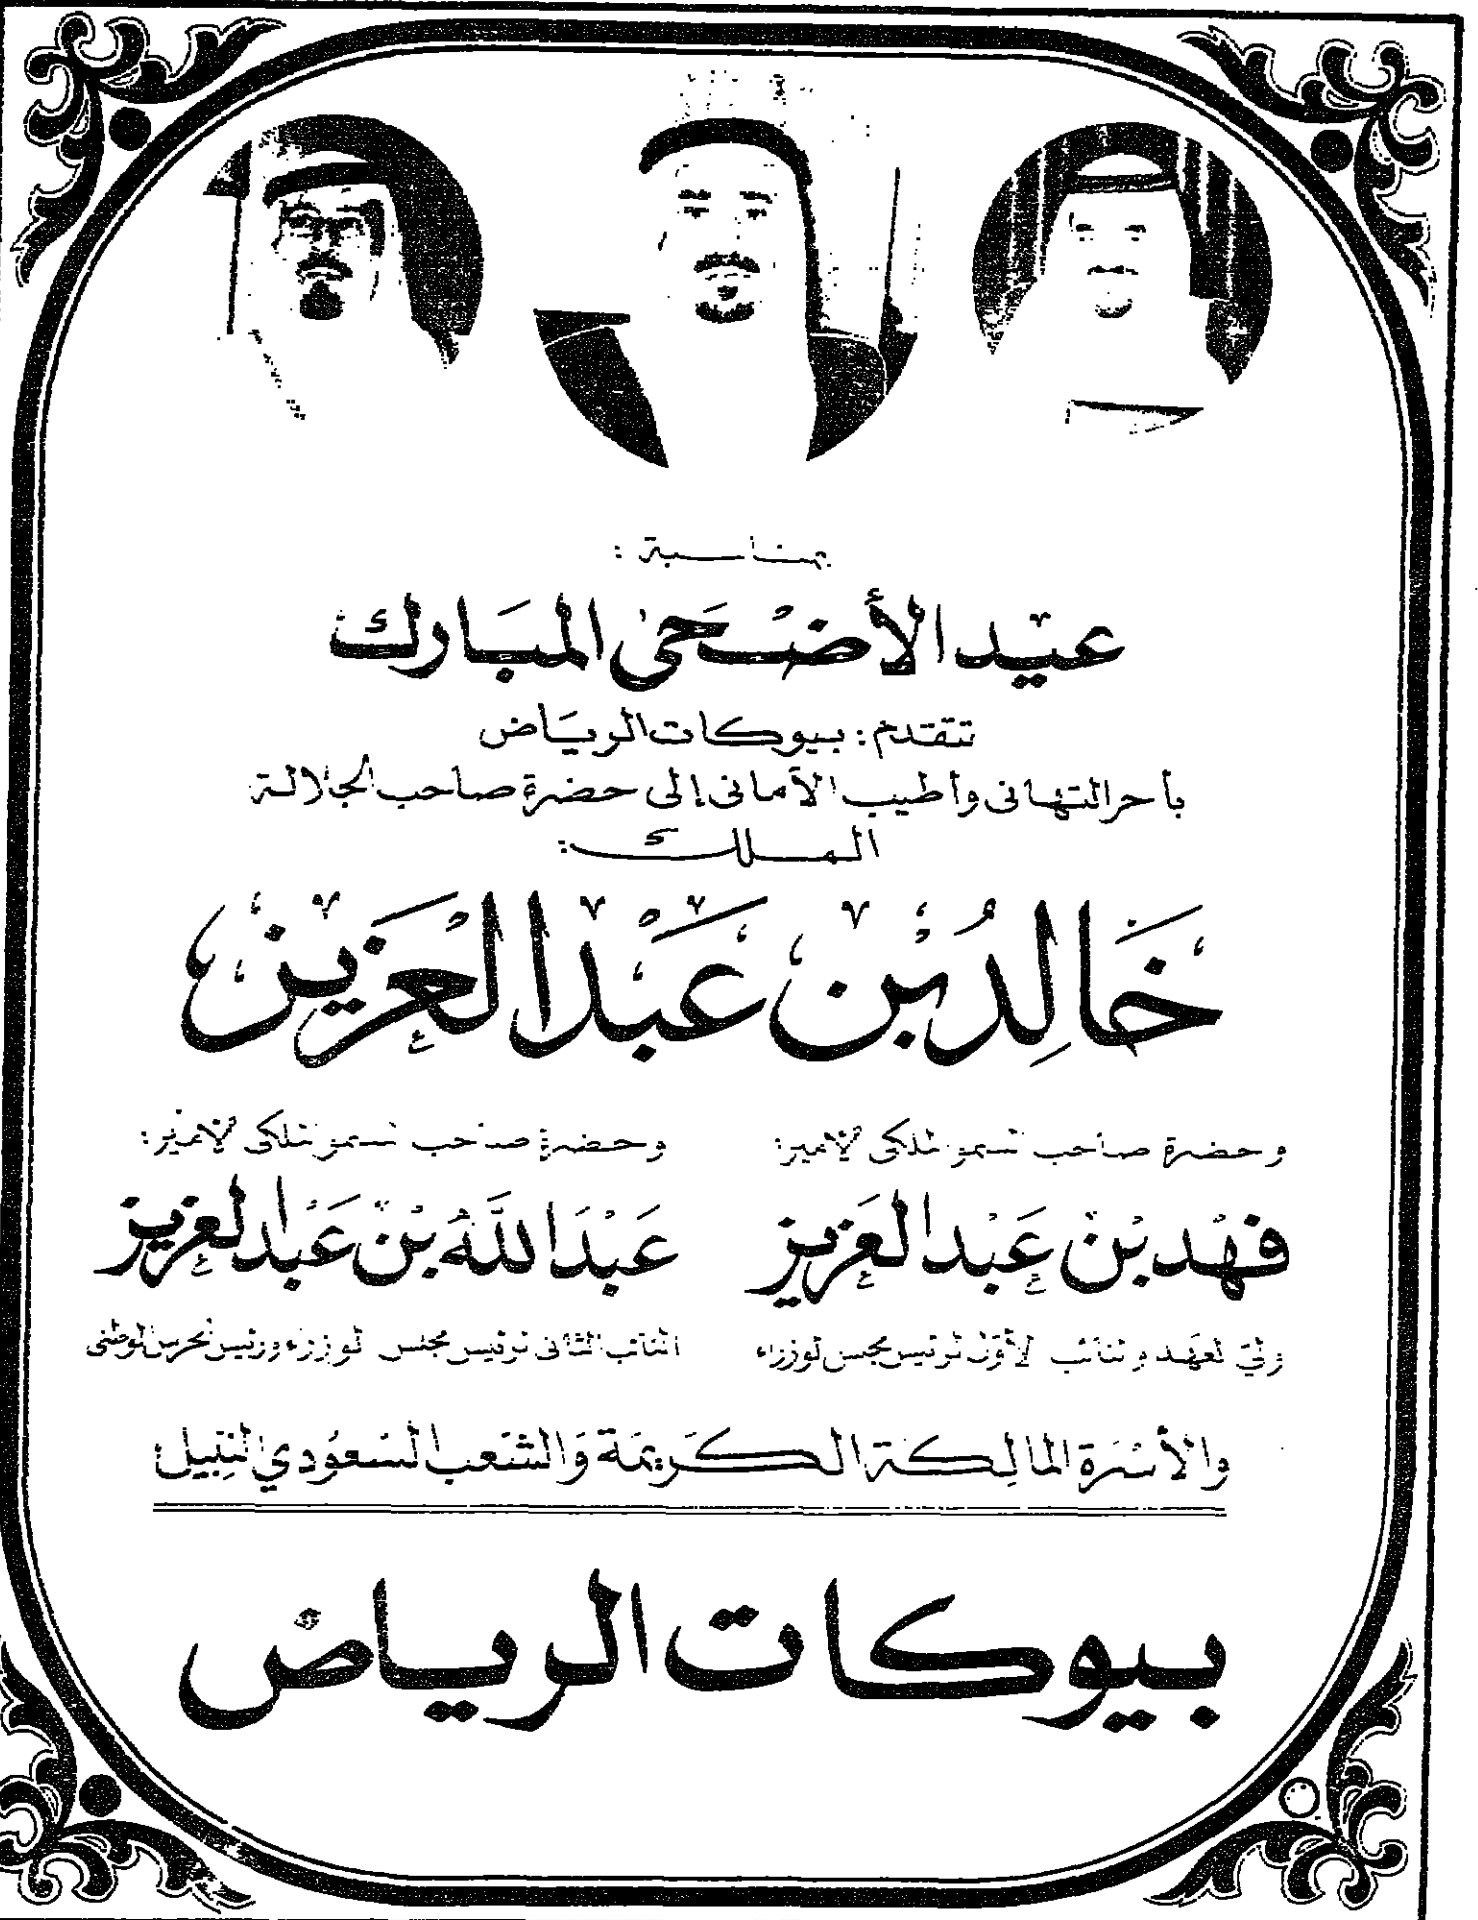 بمناسبة :
عيد الأضحى المبارك
تتقدم : بيوكات الرياض
بأحر التهاني وأطيب الأماني إلى حضرة صاحب الجلالة
الملك :
خَالِد بْن عَبْد العَزيز
وحضرة صاحب السمو الملكي الأمير :
فهد بن عبد العزيز
ولي العهد والنائب الأول لرئيس مجلس الوزراء
وحضرة صاحب السمو الملكي الأمير :
عبد الله بن عبد العزيز
النائب الثاني لرئيس مجلس الوزراء ورئيس الحرس الوطني
والأسرة المالكة الكريمة والشعب السعودي النبيل
بيوكات الرياض